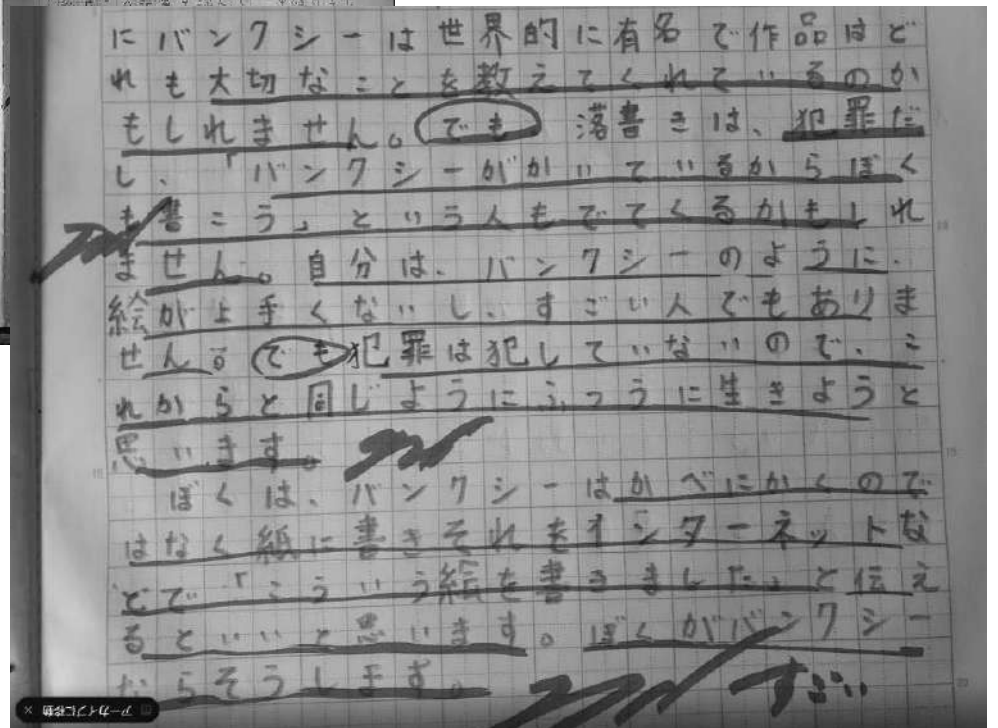 にバンクシーは世界的に有名で作品はど
れも大切なことを教えてくれているのか
もしれません。でも 落書きは、犯罪だ
し、「バンクシーがかいているからぼく
も書こう」という人もでてくるかもしれ
ません。自分は、バンクシーのように、
絵が上手くないし、すごい人でもありま
せん。でも犯罪は犯していないので、こ
れからと同じようにふつうに生きようと
思います。
ぼくは、バンクシーはかべにかくので
はなく紙に書きそれをインターネットな
どで「こういう絵を書きました」と伝え
るといいと思います。ぼくがバンクシー
ならそうします。
すごい
アーカイブに移動